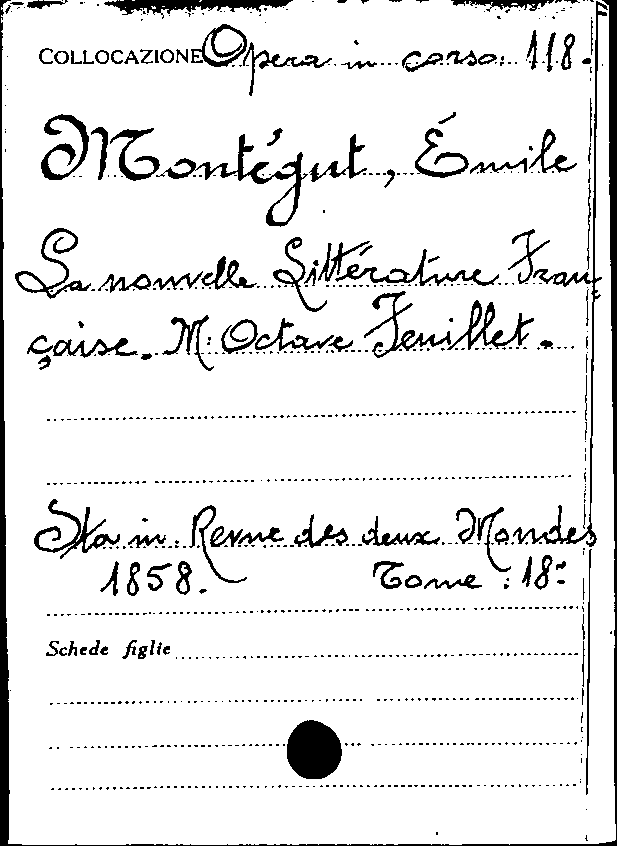 COLLOCAZIONE Opera in corso. 118.
Montégut, Émile
La nouvelle Littérature Fran-
çaise. M: Octave Feuillet.
Sta in. Revue des deux Mondes
1858. Tome: 18:
Schede figlie